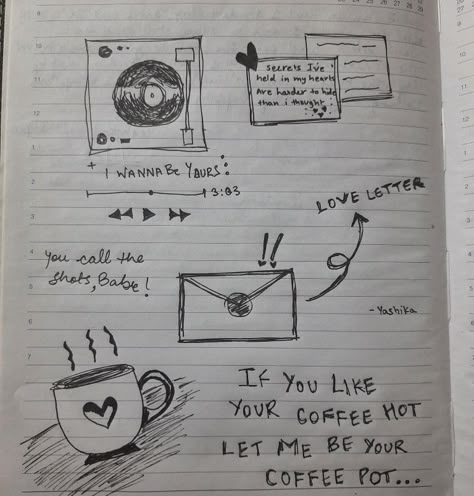 secrets I've
held in my heart
Are harder to hide
than i thought
I WANNA BE YOURS
3:03
LOVE LETTER
You call the
shots, Babe!
!!
- Yashika
IF YOU LIKE
YOUR COFFEE HOT
LET ME BE YOUR
COFFEE POT...